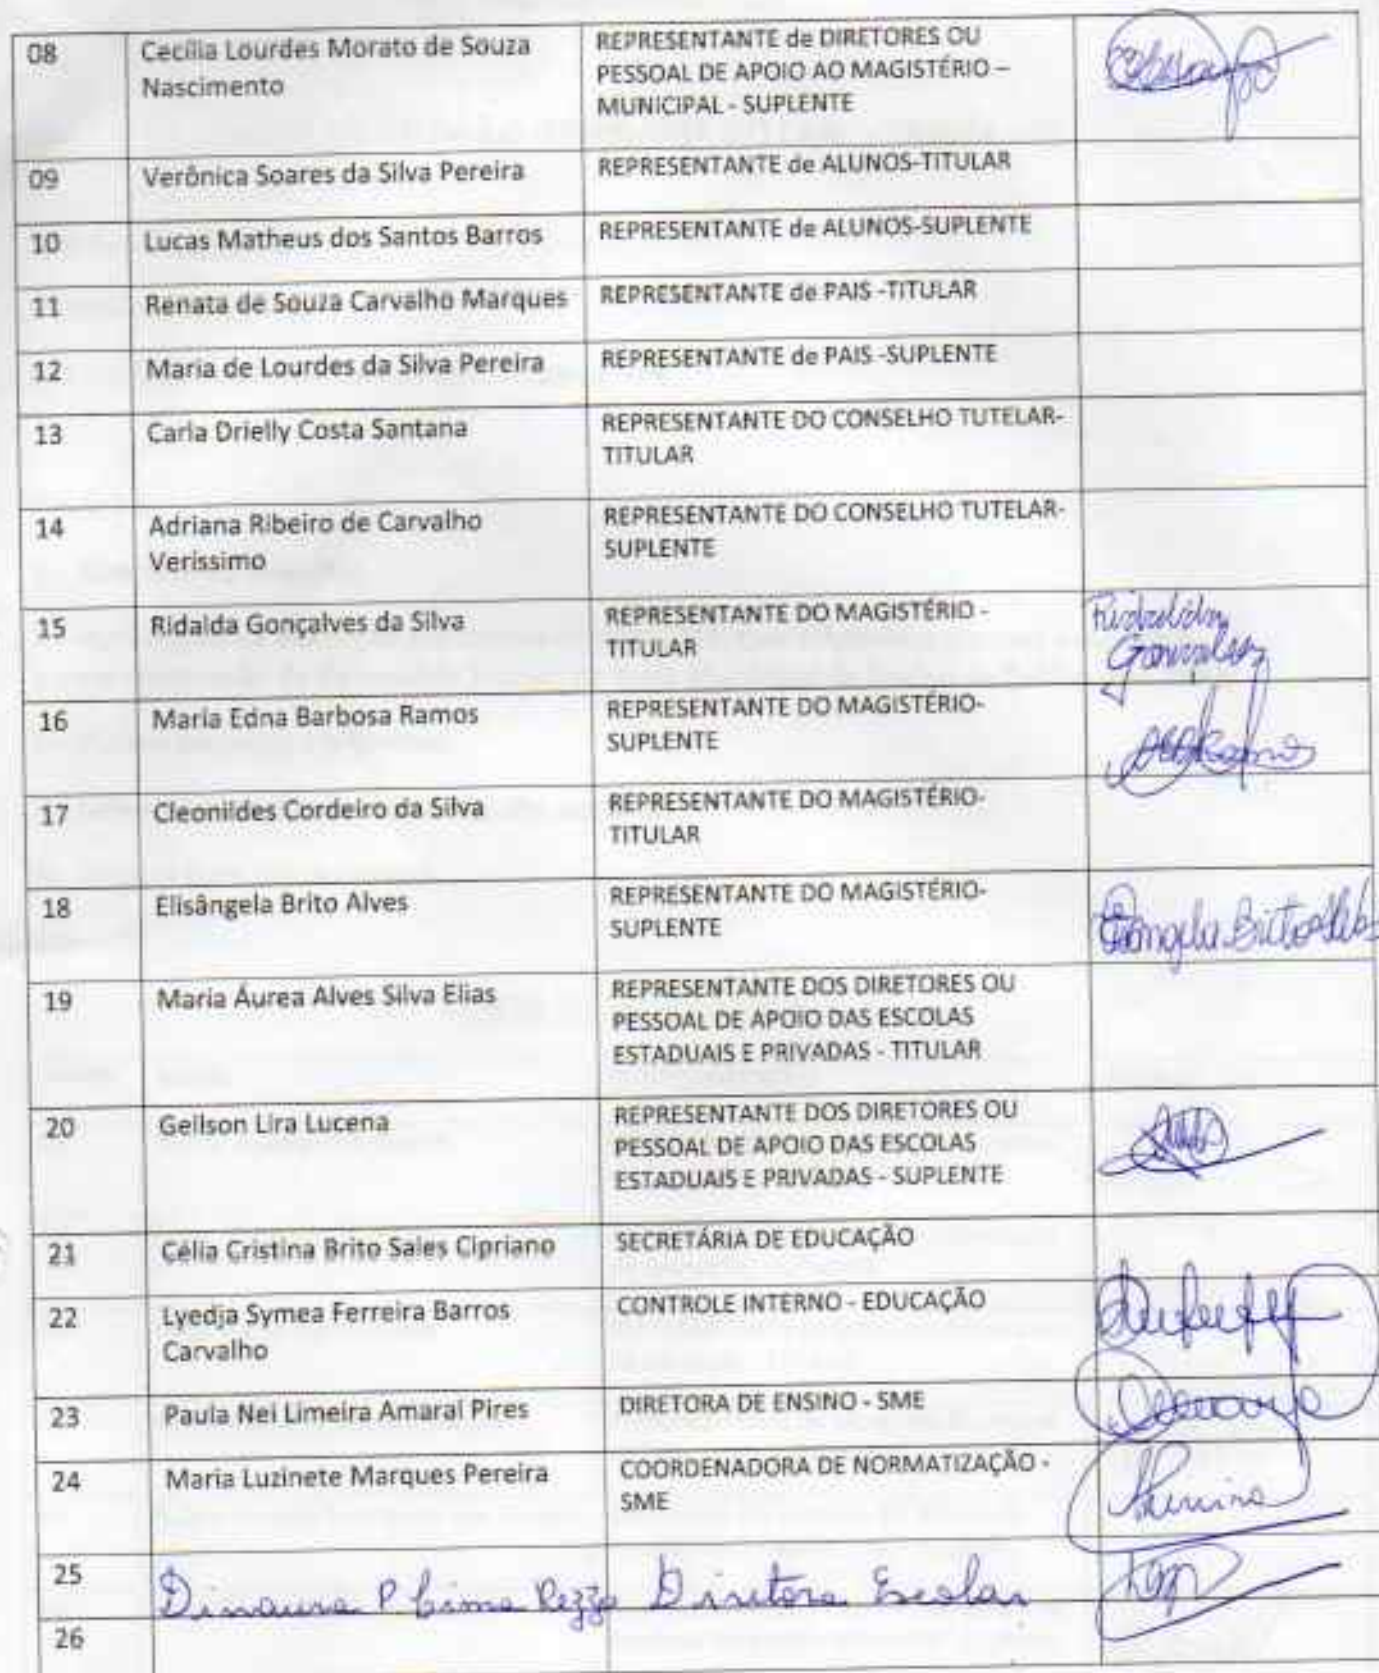 08 Cecília Lourdes Morato de Souza REPRESENTANTE de DIRETORES OU
Nascimento PESSOAL DE APOIO AO MAGISTÉRIO –
MUNICIPAL - SUPLENTE
09 Verônica Soares da Silva Pereira REPRESENTANTE de ALUNOS-TITULAR
10 Lucas Matheus dos Santos Barros REPRESENTANTE de ALUNOS-SUPLENTE
11 Renata de Souza Carvalho Marques REPRESENTANTE de PAIS -TITULAR
12 Maria de Lourdes da Silva Pereira REPRESENTANTE de PAIS -SUPLENTE
13 Carla Drielly Costa Santana REPRESENTANTE DO CONSELHO TUTELAR-
TITULAR
14 Adriana Ribeiro de Carvalho REPRESENTANTE DO CONSELHO TUTELAR-
Veríssimo SUPLENTE
15 Ridalda Gonçalves da Silva REPRESENTANTE DO MAGISTÉRIO - Ridalda
TITULAR Gonçalves
16 Maria Edna Barbosa Ramos REPRESENTANTE DO MAGISTÉRIO-
SUPLENTE
17 Cleonildes Cordeiro da Silva REPRESENTANTE DO MAGISTÉRIO-
TITULAR
18 Elisângela Brito Alves REPRESENTANTE DO MAGISTÉRIO-
SUPLENTE Elisângela Brito Alves
19 Maria Áurea Alves Silva Elias REPRESENTANTE DOS DIRETORES OU
PESSOAL DE APOIO DAS ESCOLAS
ESTADUAIS E PRIVADAS - TITULAR
20 Geilson Lira Lucena REPRESENTANTE DOS DIRETORES OU
PESSOAL DE APOIO DAS ESCOLAS
ESTADUAIS E PRIVADAS - SUPLENTE
21 Célia Cristina Brito Sales Cipriano SECRETÁRIA DE EDUCAÇÃO
22 Lyedja Symea Ferreira Barros CONTROLE INTERNO - EDUCAÇÃO
Carvalho
23 Paula Nei Limeira Amaral Pires DIRETORA DE ENSINO - SME
24 Maria Luzinete Marques Pereira COORDENADORA DE NORMATIZAÇÃO -
SME
25 Dinaura P Lima Diretora Escolar
26